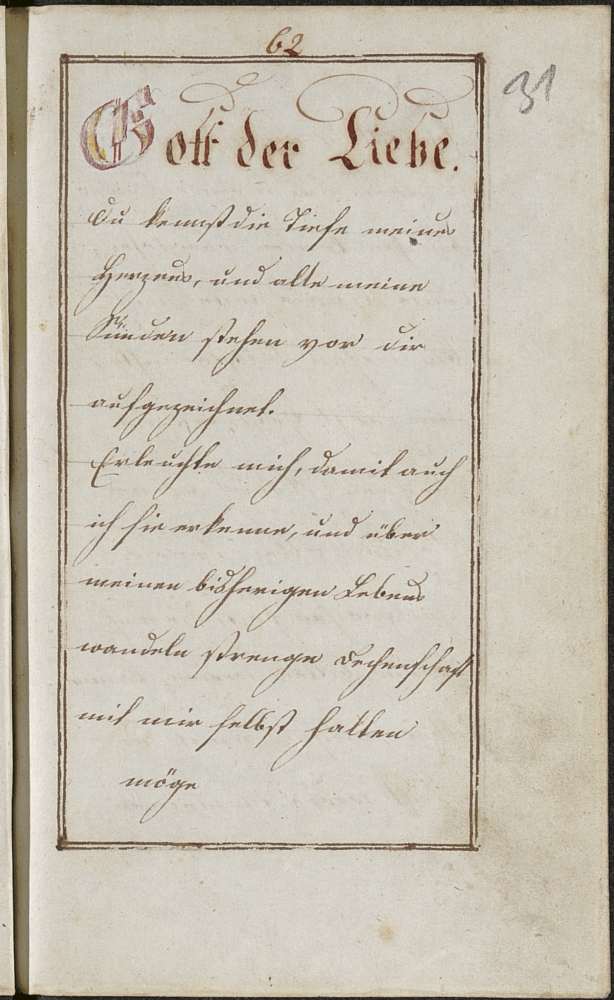 62
31
Gott der Liebe.
Du kennst die Tiefe meines
Herzens, und alle meine
Sünden stehen vor dir
aufgezeichnet.
Erleuchte mich, damit auch
ich sie erkenne, und über
meinen bisherigen Lebens
wandeln strenge Rechenschaft
mit mir selbst halten
möge